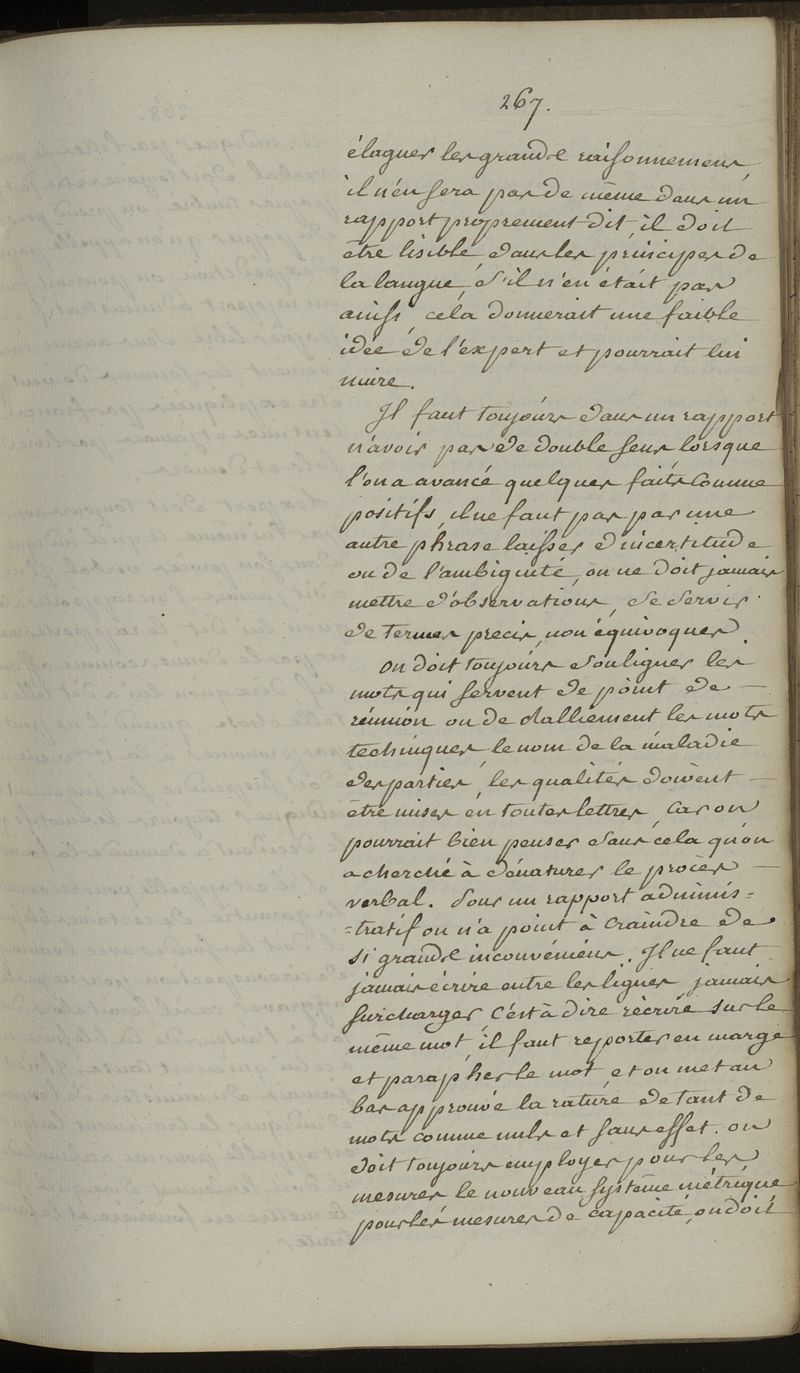 267.
élaguer les grands raisonnemens,
il n'en sera pas de même dans un
rapport proprement dit, il doit
être lisible, dans les principes de
la langue, s'il n'en était pas
ainsi, cela donnerait une faible
idée de l'expert et pourrait lui
nuire.
Il faut toujours dans un rapport
n'avoir pas de double sens lorsque
l'on a avancé quelques faits comme
positifs, il ne faut pas par une
autre phrase laisser d'incertitude
ou de l'ambiguité, on ne doit jamais
mettre d'observations, se servir
de termes precis, non équivoques.
on doit toujours souligner les
mots qui servent de point de —
réunion ou de ralliement les mots
techniques, le nom de la maladie
des parties, les qualités doivent —
être mises en toutes lettres, car on
pourrait bien penser sans cela qu'on
a cherché à dénaturer le procès —
verbal. Sous un rapport adminis=
=tratif on n'a point à craindre de
si grands inconvéniens. Il ne faut
jamais écrire entre les lignes, jamais
surcharger c'est à dire récrire sur le
même mot, il faut reporter en marge
et parapher le mot, et on met au
bas approuvé la rature de tant de
mots comme nuls et sans effet. on
doit toujours employer pour les
mesures le nouveau système métrique
pour les mesures de capacité, on doit